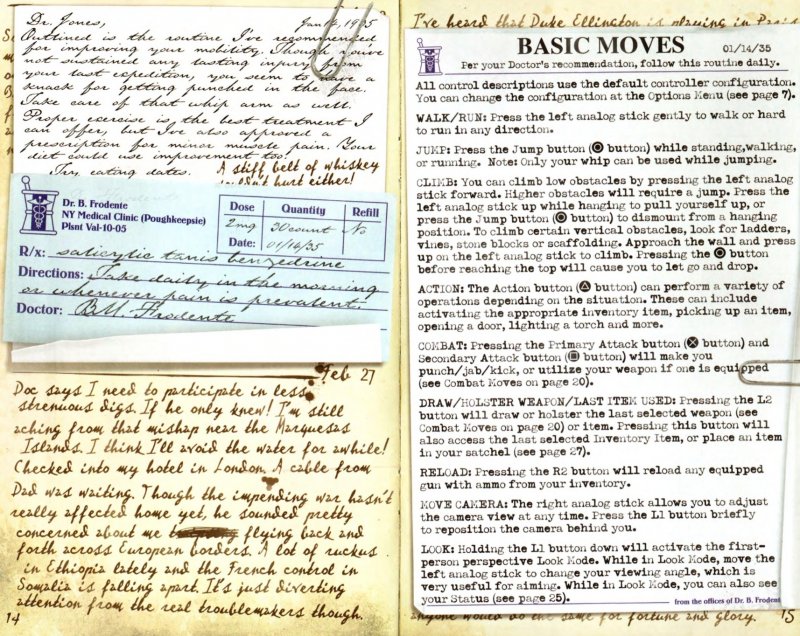 Dr. Jones,
Outlined is the routine I've recommended
for improving your mobility. Though you've
not sustained any lasting injury from
your last expedition, you seem to have a
knack for getting punched in the face.
Take care of that whip arm as well.
Proper exercise is the best treatment I
can offer, but I've also approved a
prescription for minor muscle pain. Your
diet could use improvement too.
Try eating dates.
A stiff belt of whiskey
wouldn't hurt either!
Dr. B. Frodente
NY Medical Clinic (Poughkeepsie)
Plsnt Val-10-05
Dose Quantity Refill
2mg 30 count No
Date: 01/14/35
R/x: salicylic tanis benzedrine
Directions: Take daily in the morning
or whenever pain is prevalent.
Doctor: B.M. Frodente
Feb 27
Doc says I need to participate in less
strenuous digs. If he only knew! I'm still
aching from that mishap near the Marquesas
Islands. I think I'll avoid the water for awhile!
Checked into my hotel in London. A cable from
Dad was waiting. Though the impending war hasn't
really affected home yet, he sounded pretty
concerned about me flying back and
forth across European borders. A lot of ruckus
in Ethiopia lately and the French control in
Somalia is falling apart. It's just diverting
attention from the real troublemakers though.
14
I've heard that Duke Ellington is playing in Paris
BASIC MOVES
01/14/35
Per your Doctor's recommendation, follow this routine daily.
All control descriptions use the default controller configuration.
You can change the configuration at the Options Menu (see page 7).
WALK/RUN: Press the left analog stick gently to walk or hard
to run in any direction.
JUMP: Press the Jump button (● button) while standing,walking,
or running. Note: Only your whip can be used while jumping.
CLIMB: You can climb low obstacles by pressing the left analog
stick forward. Higher obstacles will require a jump. Press the
left analog stick up while hanging to pull yourself up, or
press the Jump button (● button) to dismount from a hanging
position. To climb certain vertical obstacles, look for ladders,
vines, stone blocks or scaffolding. Approach the wall and press
up on the left analog stick to climb. Pressing the ● button
before reaching the top will cause you to let go and drop.
ACTION: The Action button (▲ button) can perform a variety of
operations depending on the situation. These can include
activating the appropriate inventory item, picking up an item,
opening a door, lighting a torch and more.
COMBAT: Pressing the Primary Attack button (✕ button) and
Secondary Attack button (■ button) will make you
punch/jab/kick, or utilize your weapon if one is equipped
(see Combat Moves on page 20).
DRAW/HOLSTER WEAPON/LAST ITEM USED: Pressing the L2
button will draw or holster the last selected weapon (see
Combat Moves on page 20) or item. Pressing this button will
also access the last selected Inventory Item, or place an item
in your satchel (see page 27).
RELOAD: Pressing the R2 button will reload any equipped
gun with ammo from your inventory.
MOVE CAMERA: The right analog stick allows you to adjust
the camera view at any time. Press the L1 button briefly
to reposition the camera behind you.
LOOK: Holding the L1 button down will activate the first-
person perspective Look Mode. While in Look Mode, move the
left analog stick to change your viewing angle, which is
very useful for aiming. While in Look Mode, you can also see
your Status (see page 25).
from the offices of Dr. B. Frodent
anyone would do the same for fortune and glory.
15